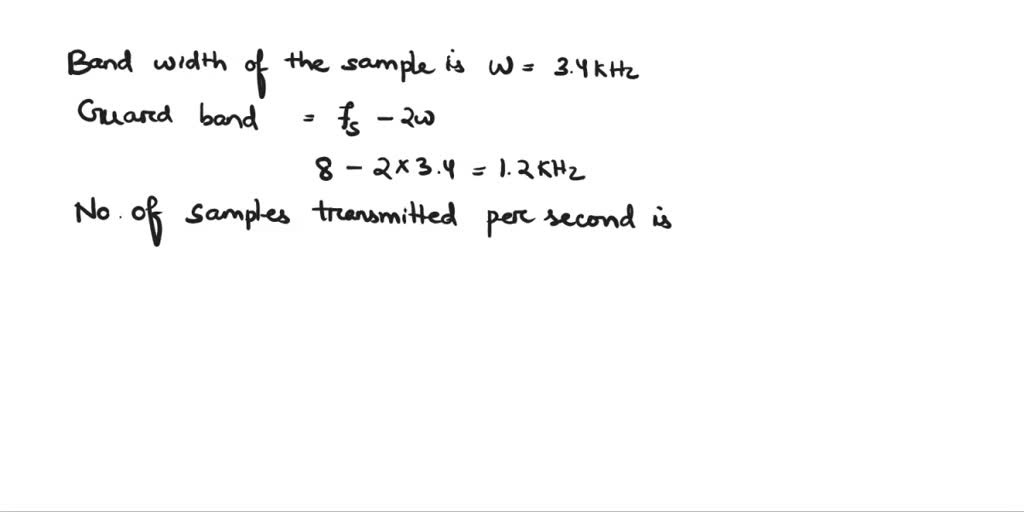 Band width of the sample is W = 3.4 KHz
Guard band = fs - 2W
8 - 2 × 3.4 = 1.2 KHz
No. of samples transmitted per second is